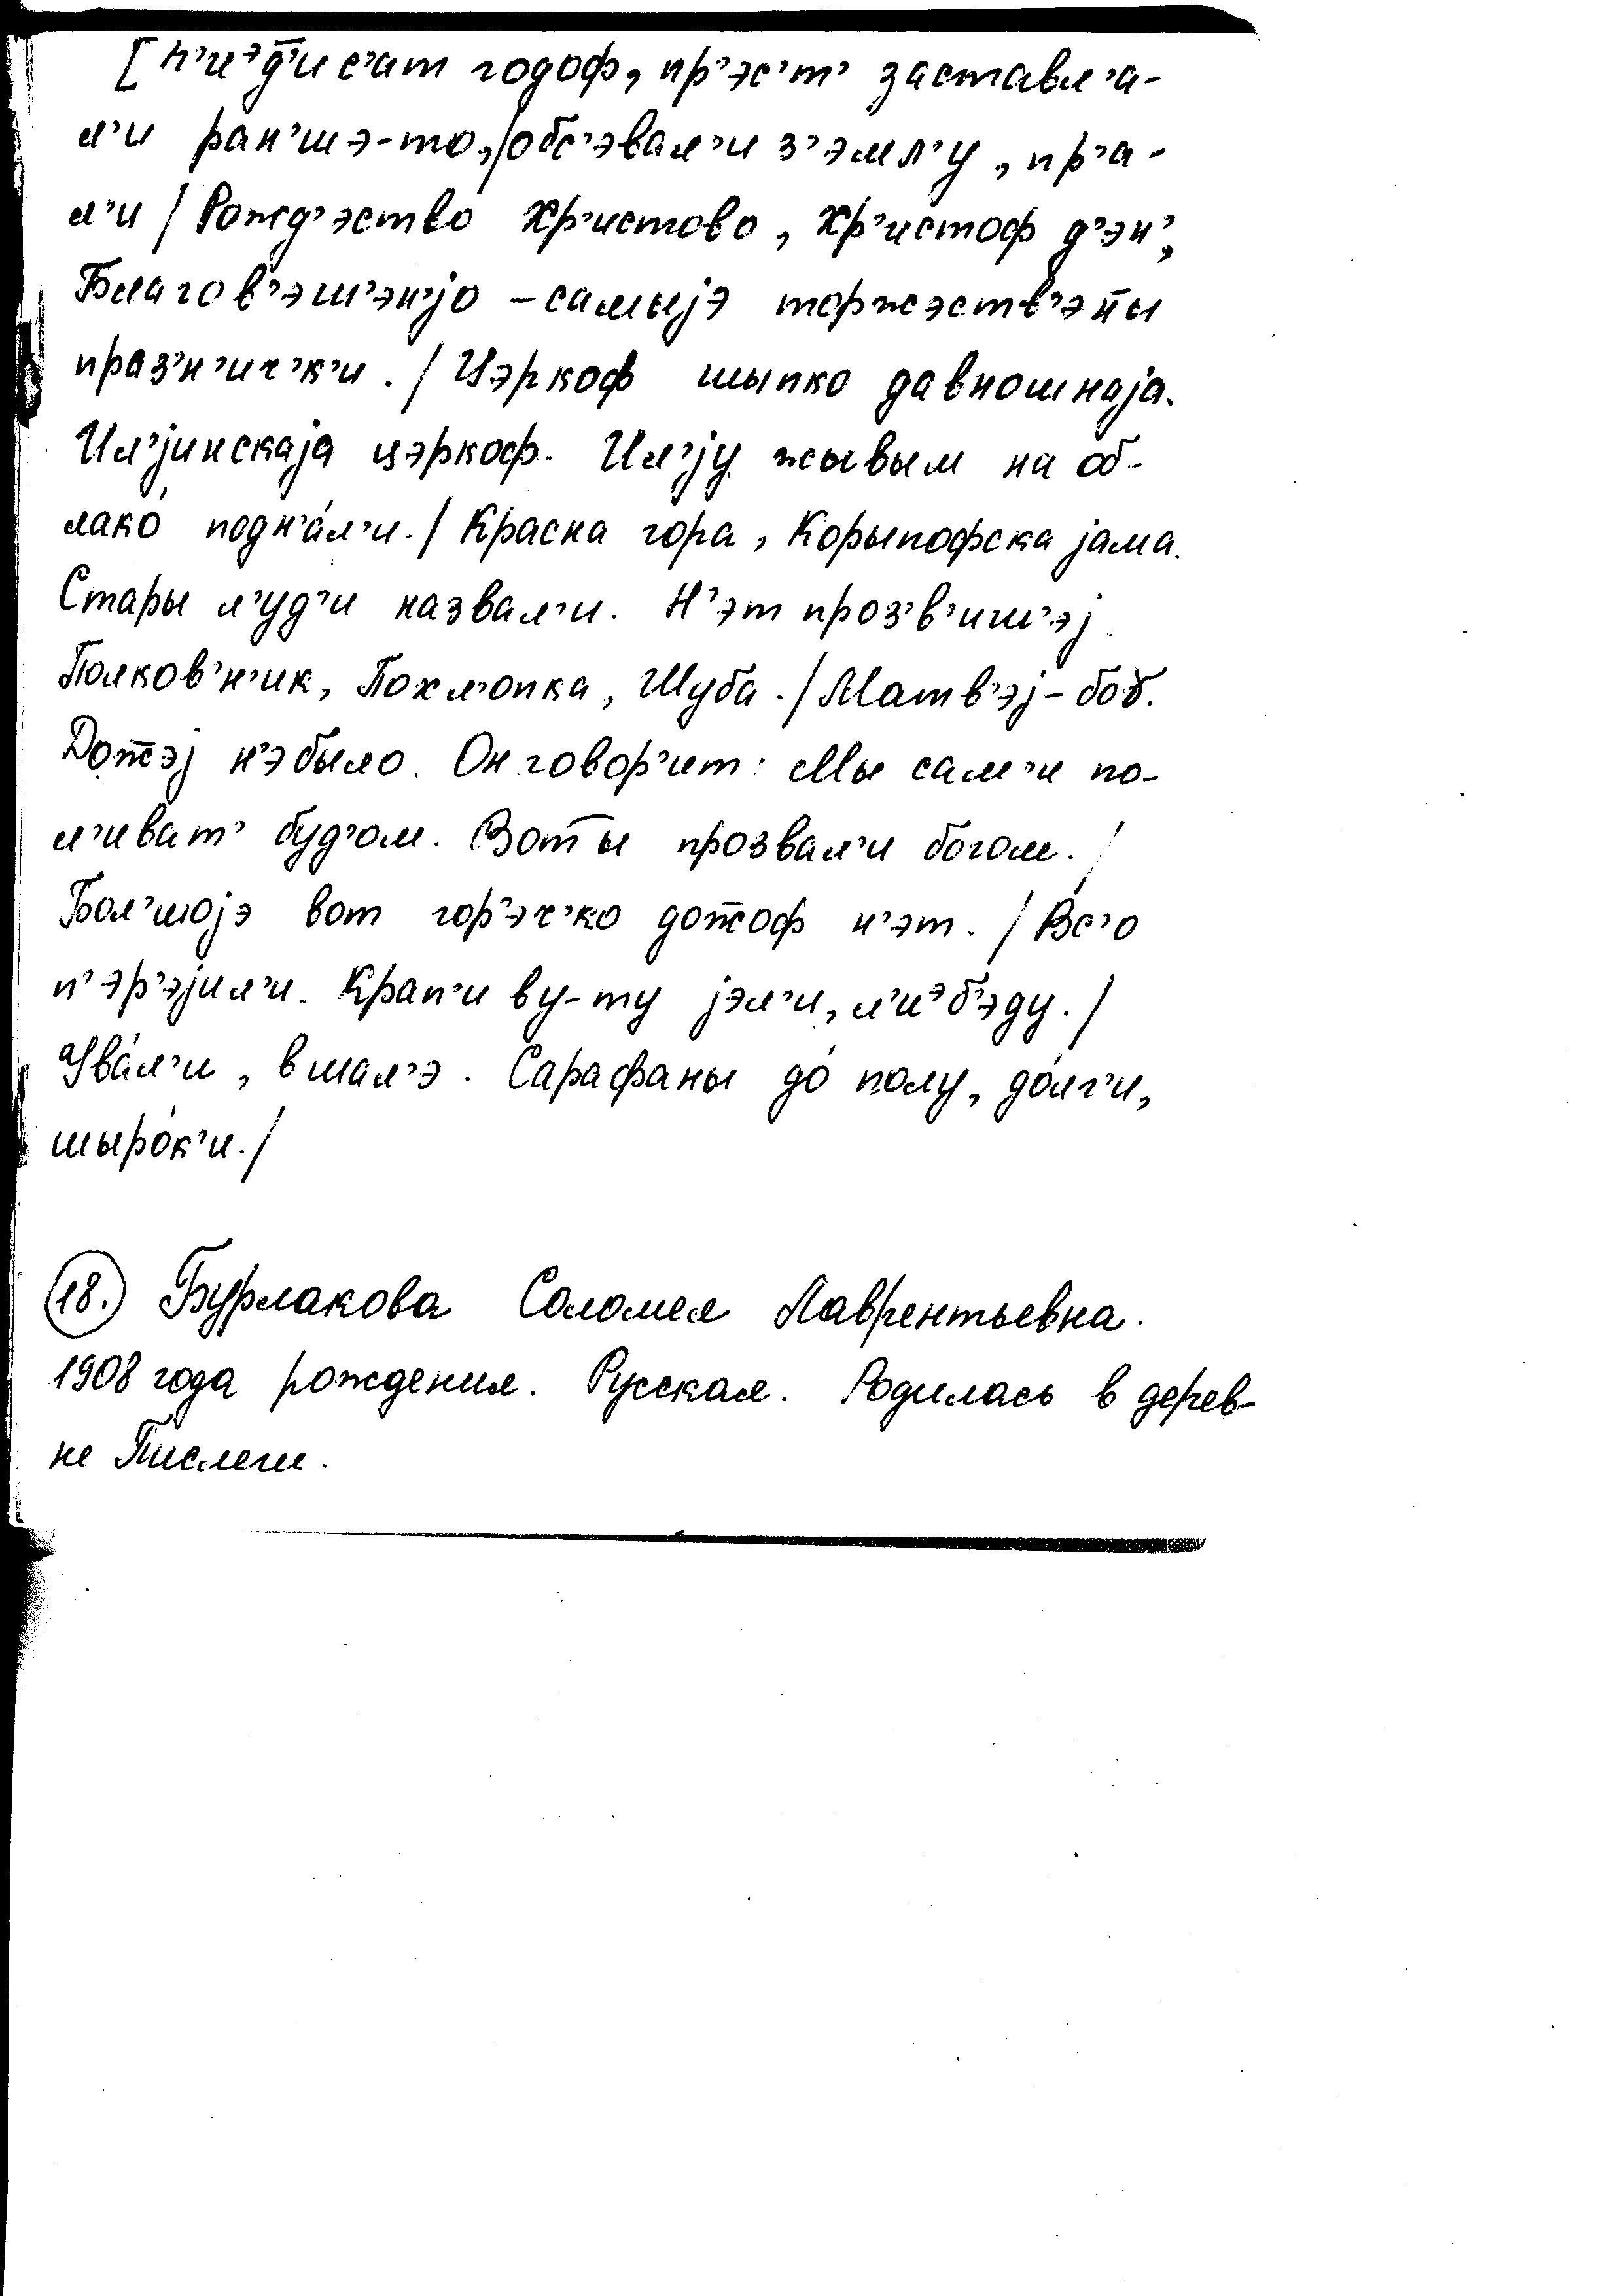 [п'иэд̄'ис'ат годоф, пр'эс'т' заставл'а-
л'и ран'шэ-то,/обс'эвал'и з'эмл'у, пр'а-
л'и / Рожд'эство Хр'истово, Хр'истоф д'эн',
Благов'эш'эн'јо – самыјэ торжэств'эн̄ы
праз'н'ич'к'и. / Цэркоф шыпко давношнаја.
Ил'јинскаја цэркоф. Ил'ју жывым на об-
лако́ подн'а́л'и. / Красна гора, Корыпофска јама.
Стары л'уд'и назвал'и. Н'эт проз'в'иш'эј.
Полков'н'ик, Похл'опка, Шуба. / Матв'эј – боɣ.
Дож̄эј н'э было. Он говор'ит: Мы сам'и по-
л'иват' буд'ом. Вот̄ы прозвал'и богом. /
Бол'шојэ вот гор'эч'ко дож̄оф н'эт. / Вс'о
п'эр'эјил'и. Крап'и ву-ту јэл'и, л'иэб'эду. /
Ува́л'и, в шал'э. Сарафаны до́ полу, до́лг'и,
шыро́к'и. /
18. Бурлакова Саломея Лаврентьевна.
1908 года рождения. Русская. Родилась в дерев-
не Тислеги.